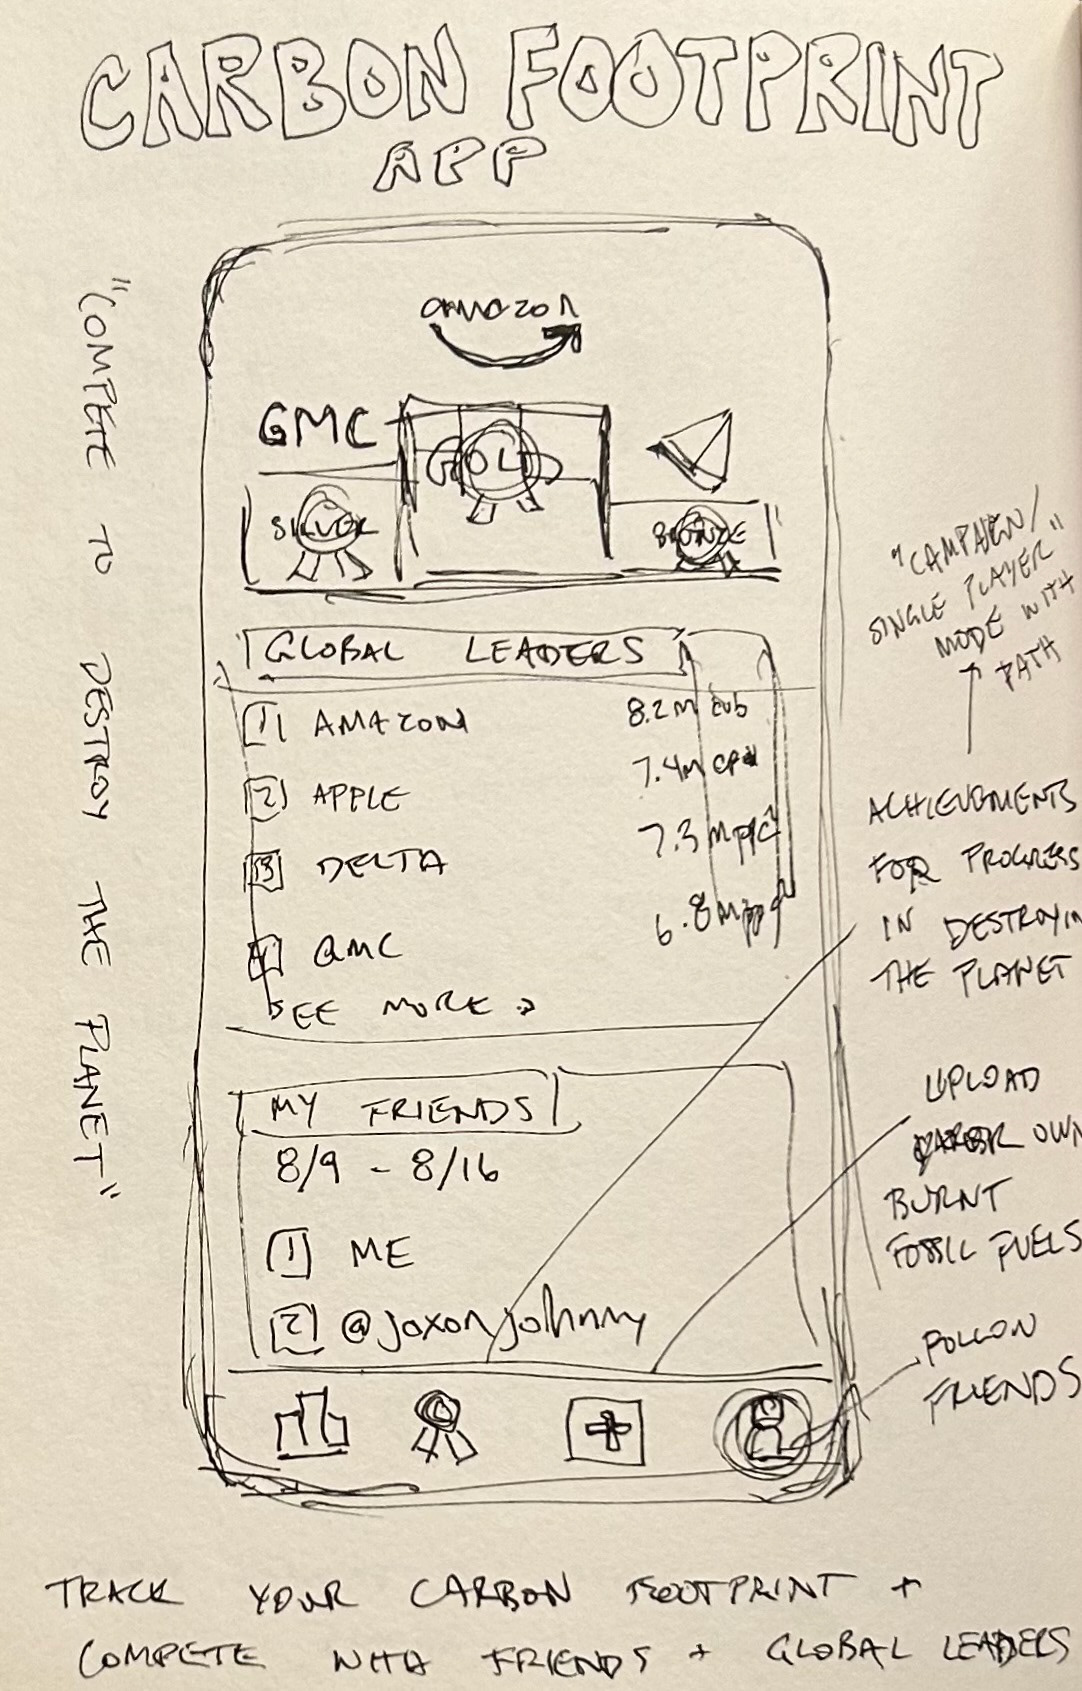 CARBON FOOTPRINT
APP
"COMPETE TO DESTROY THE PLANET"
amazon
GMC
GOLD
SILVER
BRONZE
GLOBAL LEADERS
1 AMAZON 8.2M
2 APPLE 7.4M
3 DELTA 7.3M
4 GMC 6.8M
SEE MORE
MY FRIENDS
8/9 - 8/16
1 ME
2 @jaxonjohnny
"CAMPAIGN/
SINGLE PLAYER"
MODE WITH
PATH
ACHIEVEMENTS
FOR PROGRESS
IN DESTROYIN
THE PLANET
UPLOAD
OWN
BURNT
FOSSIL FUELS
FOLLOW
FRIENDS
TRACK YOUR CARBON FOOTPRINT +
COMPETE WITH FRIENDS + GLOBAL LEADERS